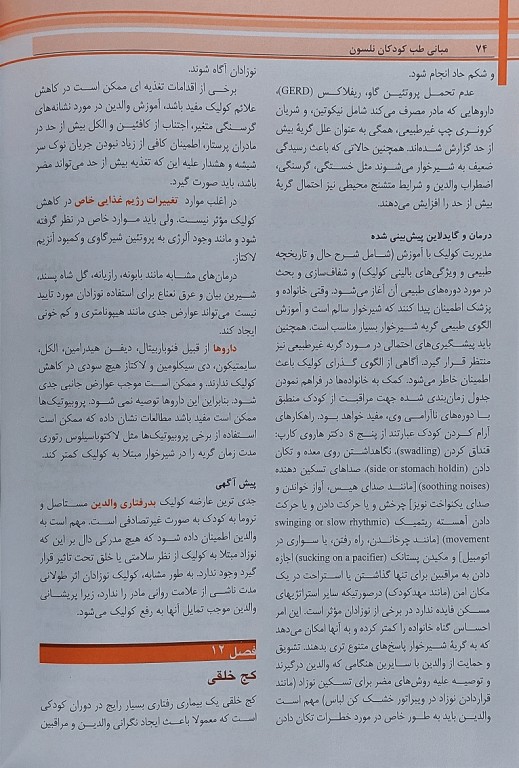 ۷۴ مبانی طب کودکان نلسون
و شکم حاد انجام شود.
عدم تحمل پروتئین گاو، ریفلاکس (GERD)،
داروهایی که مادر مصرف می‌کند شامل نیکوتین، و شریان
کرونری چپ غیرطبیعی، همگی به عنوان علل گریهٔ بیش
از حد گزارش شده‌اند. همچنین حالاتی که باعث رسیدگی
ضعیف به شیرخوار می‌شوند مثل خستگی، گرسنگی،
اضطراب والدین و شرایط متشنج محیطی نیز احتمال گریهٔ
بیش از حد را افزایش می‌دهند.
درمان و گایدلاین پیش‌بینی شده
مدیریت کولیک با آموزش (شامل شرح حال و تاریخچه
طبیعی و ویژگی‌های بالینی کولیک) و شفاف‌سازی و بحث
در مورد دوره‌های طبیعی آن آغاز می‌شود. وقتی خانواده و
پزشک اطمینان پیدا کنند که شیرخوار سالم است و آموزش
الگوی طبیعی گریه شیرخوار بسیار مناسب است. همچنین
باید پیشگیری‌های احتمالی در مورد گریه غیرطبیعی نیز
منتظر قرار گیرد. آگاهی از الگوی گذرای کولیک باعث
اطمینان خاطر می‌شود. کمک به خانواده‌ها در فراهم نمودن
جدول زمان‌بندی شده جهت مراقبت از کودک منطبق
با دوره‌های ناآرامی وی، مفید خواهد بود. راهکارهای
آرام کردن کودک عبارتند از پنج s دکتر هاروی کارپ:
قنداق کردن (swadling)، نگاهداشتن روی معده و تکان
دادن (side or stomach holdin)، صداهای تسکین دهنده
(soothing noises) [مانند صدای هیس، آواز خواندن و
صدای یکنواخت نویز] چرخش و یا حرکت دادن و یا حرکت
دادن آهسته ریتمیک (swinging or slow rhythmic
movement) [مانند چرخاندن، راه رفتن، یا سواری در
اتومبیل] و مکیدن پستانک (sucking on a pacifier) اجازه
دادن به مراقبین برای تنها گذاشتن یا استراحت در یک
مکان امن (مانند مهدکودک) درصورتیکه سایر استراتژیهای
مسکن فایده ندارد در برخی از نوزادان مؤثر است. این امر
احساس گناه خانواده را کمتر کرده و به آنها امکان می‌دهد
که به گریهٔ شیرخوار پاسخ‌های متنوع تری بدهند. تشویق
و حمایت از والدین با سایرین هنگامی که والدین درگیرند
و توصیه علیه روش‌های مضر برای تسکین نوزاد (مانند
قراردادن نوزاد در ویبراتور خشک کن لباس) مهم است
والدین باید به طور خاص در مورد خطرات تکان دادن
نوزادان آگاه شوند.
برخی از اقدامات تغذیه ای ممکن است در کاهش
علائم کولیک مفید باشد، آموزش والدین در مورد نشانه‌های
گرسنگی متغیر، اجتناب از کافئین و الکل بیش از حد در
مادران پرستار، اطمینان کافی از زیاد نبودن جریان نوک سر
شیشه و هشدار علیه این که تغذیه بیش از حد می‌تواند مضر
باشد، باید صورت گیرد.
در اغلب موارد تغییرات رژیم غذایی خاص در کاهش
کولیک مؤثر نیست. ولی باید موارد خاص در نظر گرفته
شود و مانند وجود آلرژی به پروتئین شیرگاوی وکمبود آنزیم
لاکتاز.
درمان‌های مشابه مانند بابونه، رازیانه، گل شاه پسند،
شیرین بیان و عرق نعناع برای استفاده نوزادان مورد تایید
نیست می‌تواند عوارض جدی مانند هیپوناترمی و کم خونی
ایجاد کند.
داروها از قبیل فنوباربیتال، دیفن هیدرامین، الکل،
سایمتیکون، دی سیکلومین و لاکتاز هیچ سودی در کاهش
کولیک ندارند. و ممکن است موجب عوارض جانبی جدی
شود. بنابراین این داروها توصیه نمی شود. پروبیوتیک‌ها
ممکن است مفید باشد مطالعات نشان داده که ممکن است
استفاده از برخی پروبیوتیک‌ها مثل لاکتوباسیلوس رتوری
مدت زمان گریه را در شیرخوار مبتلا به کولیک کمتر کند.
پیش آگهی
جدی ترین عارضه کولیک بدرفتاری والدین مستاصل و
تروما به کودک به صورت غیرتصادفی است. مهم است به
والدین اطمینان داده شود که هیچ مدرکی دال بر این که
نوزاد مبتلا به کولیک از نظر سلامتی یا خلق تحت تاثیر قرار
گیرد وجود ندارد. به طور مشابه، کولیک نوزادان اثر طولانی
مدت ناشی از علامت روانی مادر را ندارد، زیرا پریشانی
والدین موجب تمایل آنها به رفع کولیک می‌شود.
فصل ۱۲
کج خلقی
کج خلقی یک بیماری رفتاری بسیار رایج در دوران کودکی
است که معمولا باعث ایجاد نگرانی والدین و مراقبین